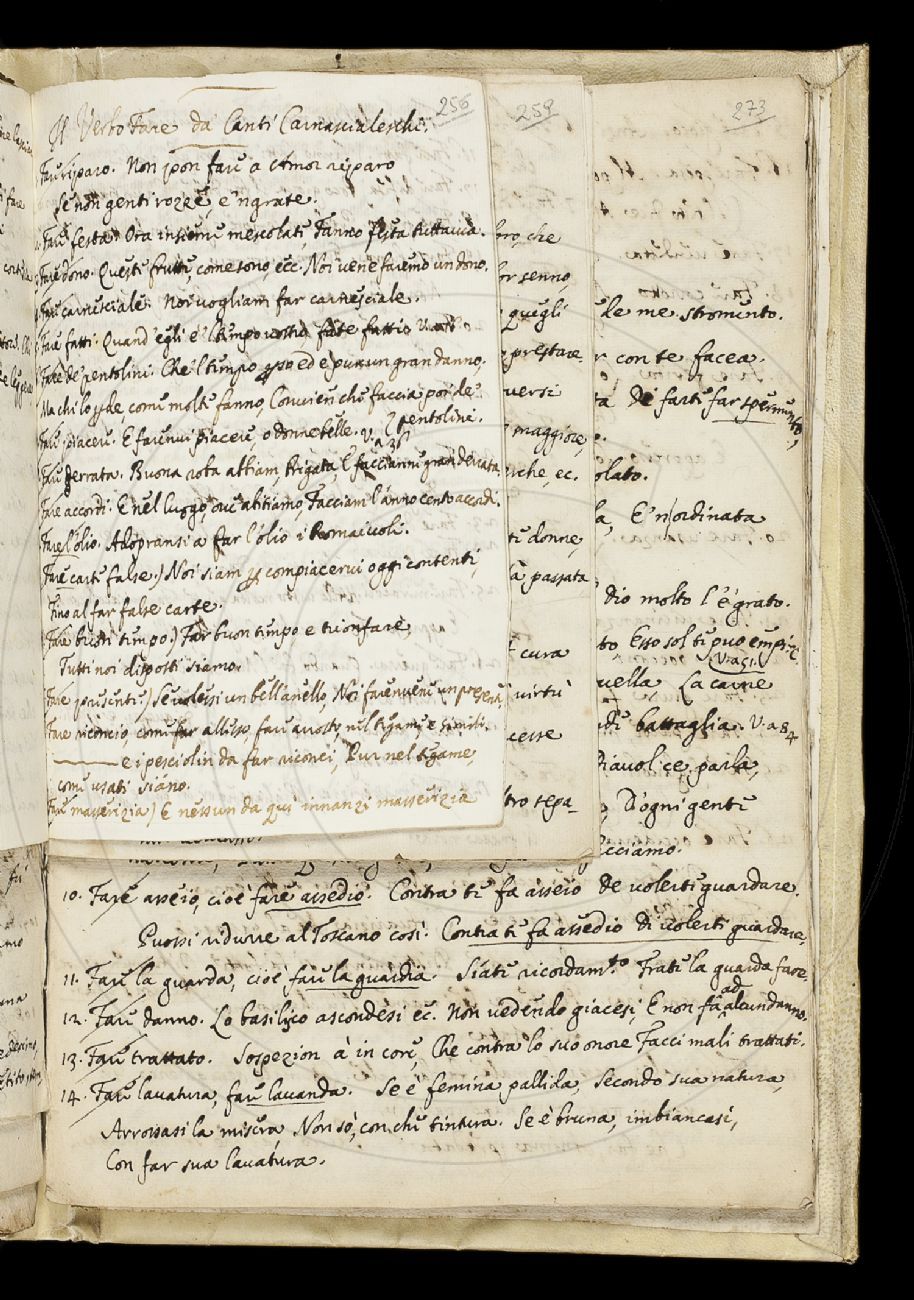 256
Il Verbo Fare da Canti Carnascialeschi.
Fare riparo. Non pon fare a Amor riparo
Se non genti rozze, e 'ngrate.
Fare festa. Ora insieme mescolati, Fanno festa tuttavia.
Fare dono. Questi frutti, come sono, ecc. Noi ve ne faremo un dono.
Fare carnesciale. Noi vogliam far carnesciale.
Fare fatti. Quand' egli è 'l tempo vostro fate fatti
Fare de' pentolini. Che 'l tempo perso ed è pur un gran danno,
Ma chi lo perde, come molti fanno, Convien che faccia poi de'
pentolini.
Fare piacere. E farenvi piacere, o donne belle. v. a 36
Fare derrata. Buona roba abbiam, brigata, E facciamne gran derrata.
Fare accordi. E nel luogo, ove abitiamo, Facciam l'anno cento accordi.
Fare l'olio. Adopransi a far l'olio i Romaiuoli.
Fare carte false.) Noi siam per compiacervi oggi contenti,
Fino al far false carte.
Fare buon tempo.) Far buon tempo e trionfare,
Tutti noi disposti siamo.
Fare presenti.) Se volessi un bell'anello, Noi faremvene un presente,
Fare riconcio come far allesso, fare arrosto, nel tegame, e simili.
e i pesciolin da far riconci, Pur nel tegame,
come usati siano.
Fare masserizia) E nessun da qui innanzi masserizia
259
loro, che
lor senno,
quegli
prestare.
versi
maggiore,
perche, ec.
ti donne,
la passata
cura
virtù
cesse
tro sepa-
273
le me stromento.
r con te facea.
ta De farti far sperimento,
olato.
la, E'nordinata
dio molto l'è grato.
to Esso sol ti può empire
V. a 51.
uella, La carne
di battaglia. V. a 84
Diavol ce parla,
, D'ogni gente
cciamo.
10. Fare asseio, cioè fare assedio. Contra te fa asseio De volerti guardare.
Puossi ridurre al Toscano così. Contra te fa assedio di volerti guardare.
11. Fare la guarda, cioè fare la guardia. Siati ricordam.to Frate la guarda fare.
12. Fare danno. Lo basilico ascondesi ec. Non vedendo giacesi, E non fa ad alcun danno.
13. Fare trattato. Sospezion à in core, Che contra lo suo onore Facci mali trattati.
14. Fare lavatura, fare lavanda. Se è femina pallida, Secondo sua natura,
Arrossasi la misera, Non sò, con che tintura. Se è bruna, imbiancasi,
Con far sua lavatura.